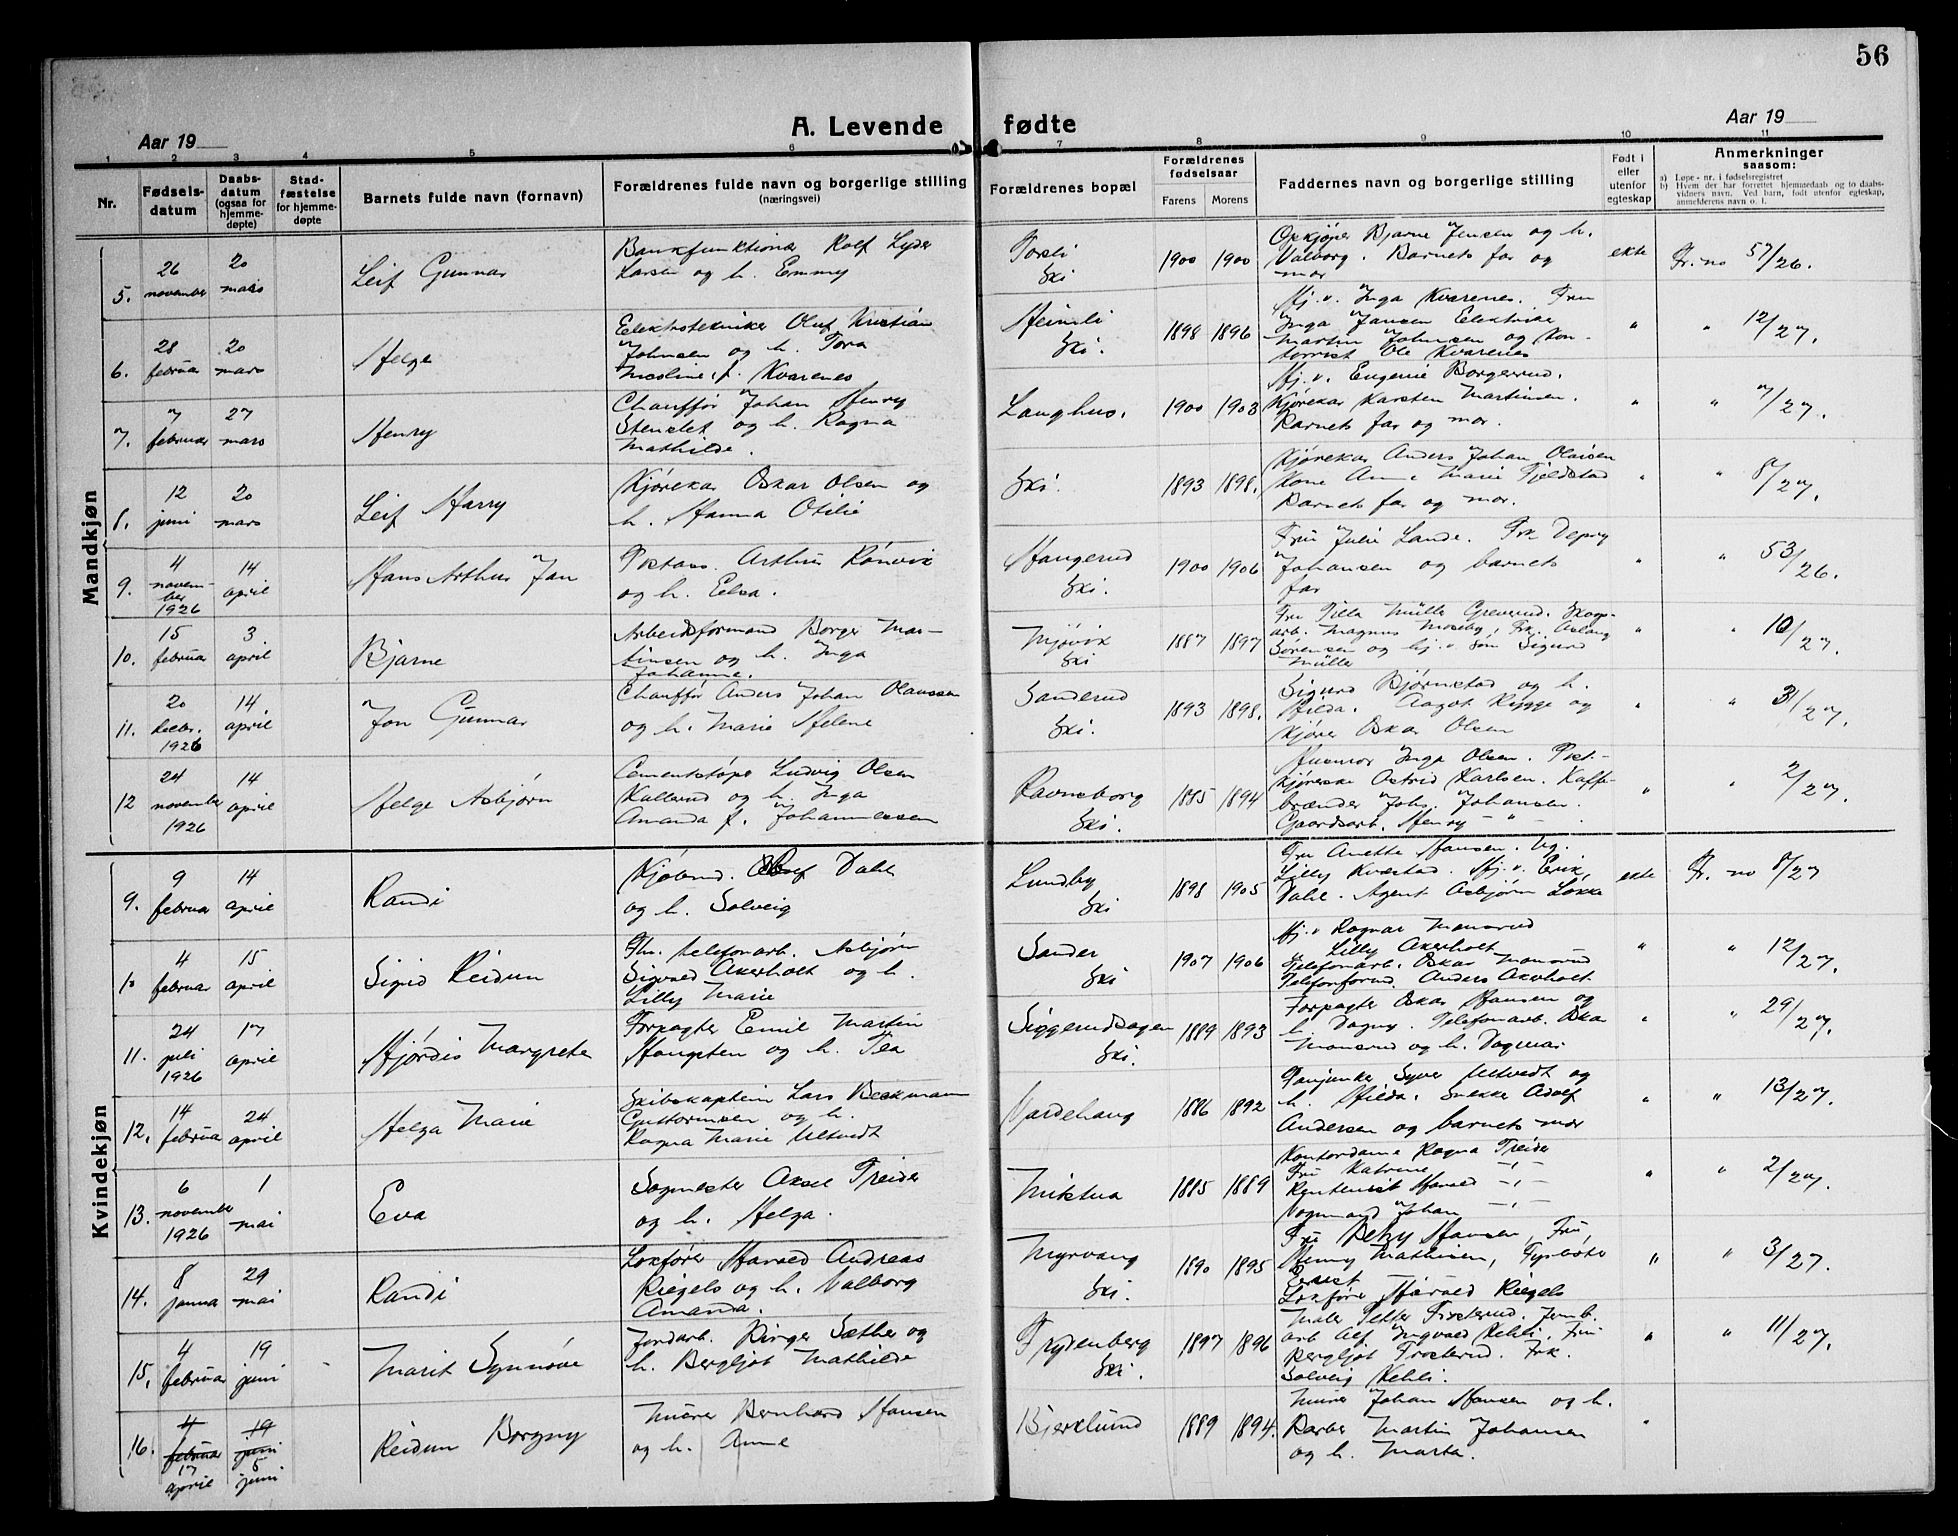 56
A. Levende fødte
Aar 19
Aar 19
1 2 3 4 5 6 7 8 9 10 11
Nr.
Fødsels-
datum
Daabs-
datum
(ogsaa for
hjemme-
døpte)
Stad-
fæstelse
for hjemme-
døpte
Barnets fulde navn (fornavn)
Forældrenes fulde navn og borgerlige stilling
(næringsvei)
Forældrenes bopæl
Forældrenes
fødselsaar
Farens Morens
Faddernes navn og borgerlige stilling
Født i
eller
utenfor
egteskap
Anmerkninger
saasom:
a) Løpe-nr. i fødselsregistret
b) Hvem der har forrettet hjemmedaab og to daabs-
vidners navn. Ved barn, født utenfor egteskap,
anmelderens navn o. l.
Mandkjøn
5.
26
november
20
mars
Leif Gunnar
Bankfunktionær Rolf Lyder
Larsen og h. Emmy
Ski
1900 1900
Opkjøper Bjarne Jensen og h.
Valborg. Barnets far og
mor
ekte
Fr. no 57/26.
6.
28
februar
20
mars
Helge
Elektrotekniker Oluf Kristian
Johnsen og h. Tora
Nicoline, f. Kvarenes
Heimli
Ski.
1898 1896
Hj. v. Inga Kvarenes. Fru
Inga Jansen Elektriker
Martin Johnsen og kon-
torrist Ole Kvarenes
"
" 12/27.
7.
7
februar
27
mars
Henry
Chauffør Johan Henry
Stenslet og h. Ragna
Mathilde.
Langhus.
1900 1903
Hj. v. Eugenie Borgerud.
Kjørekar Karsten Martinsen.
Barnets far og mor.
"
" 7/27.
8.
12
juni
20
mars
Leif Harry
Kjørekar Oskar Olsen og
h. Hanna Otilie
Ski.
1893 1898.
Kjørekar Anders Johan Olaisen
Kone Anne Marie Fjeldstad
Barnets far og mor.
"
" 8/27.
9.
4
novem-
ber
1926
14
april
Hans Arthur Jan
Postass. Arthur Rønvik
og h. Elsa.
Haugerud
Ski.
1900 1906
Fru Julie Lande. Frk
Johansen og barnets
far
"
" 53/26.
10.
15
februar
3
april
Bjarne
Arbeidsformand Borger Mar-
tinsen og h. Inga
Johanne.
Mjøvik
Ski
1887 1897
Fru Tilla Müller Greverud. Skog-
arb. Magnus Moseby, Frk. Aslaug
Sørensen og hj. v. søn Sigurd
Müller
"
" 10/27.
11.
20
decbr.
1926
14.
april
Jon Gunnar
Chauffør Anders Johan Olaussen
og h. Marie Helene
Sanderud
Ski.
1893 1898.
Sigurd Bjørnstad og h.
Hilda. Aagot Rygge og
kjører Oskar Olsen
"
" 3/27.
12
24
november
1926
14
april
Helge Asbjørn
Cementstøper Ludvig Olsen
Kullerud og h. Inga
Amanda f. Johannessen
Ravnsborg
Ski.
1885 1894
Husmor Inga Olsen. Post-
kjørerske Astrid Karlsen. Kaffe-
brænder Johs. Johansen.
Gaardsarb. Henry - " -
"
" 2/27.
Kvindekjøn
9.
9
februar
14
april
Randi
Kjøbmd. Olaf Dahl
og h. Solveig
Lundby
Ski
1898 1905
Fru Anette Hansen. Ug.
Lilly Kvæstad. Hj. v. Erik
Dahl. Agent Asbjørn Løkke
ekte
Fr. no 8/27
10
4
februar
15
april
Sigrid Reidun
Fhv. telefonarb. Asbjørn
Sigvald Akerholt og h.
Lilly Marie
Sander
Ski
1907 1906
Hj. v. Ragnar Monsrud
Lilly Akerholt
Telefonarb. Oskar Monsrud
Telefonformd. Anders Akerholt
"
" 12/27.
11.
24
juli
1926
17
april
Hjørdis Margrete
Forpagter Emil Martin
Haugsten og h. Tea
Siggerudsagen
Ski.
1889 1893
Forpagter Oskar Hansen og
h. Dagny. Telefonarb. Oskar
Monsrud og h. Dagmar
"
" 29/27.
12.
14
februar
24
april
Helga Marie
Skibskaptein Lars Beckmann
Guttormsen og h.
Ragna Marie Utvedt
Vardehaug
1886 1892
Fanjunker Syver Utvedt og
h. Hilda. Snekker Adolf
Andersen og barnets mor
"
" 13/27.
13.
6
november
1926
1
mai
Eva
Sogneprest Aksel Treider
og h. Helga.
1885 1889
Kontordame Ragna Treider
Fru Katrine - " -
Harald - " -
Johan - " -
"
" 2/27.
14.
8
januar
29
mai
Randi
Lokfører Harald Andreas
Riegels og h. Valborg
Amanda.
Myrvang
Ski.
1890 1895
Fru Betzy Hansen, Fru
Henny Mathisen, Fyrbøter
Lokfører Harald Riegels
"
" 3/27.
15.
4
februar
19
juni
Marit Synnøve
Jordarb. Birger Sæther og
h. Bergljot Mathilde
Frydenberg
Ski.
1897 1896
Maler Petter Frosterud. Jernb.
arb Alf Ingvald Kehli. Fru
Bergljot Frosterud. Frk.
Solveig Kehli.
"
" 11/27.
16.
4
februar
17
april
19
juni
5
juni
Reidun Borgny
Murer Bernhard Hansen
og h. Anne
Bjerklund
1889 1894.
Murer Johan Hansen og h.
Barber Martin Johansen
og h. Marta.
"